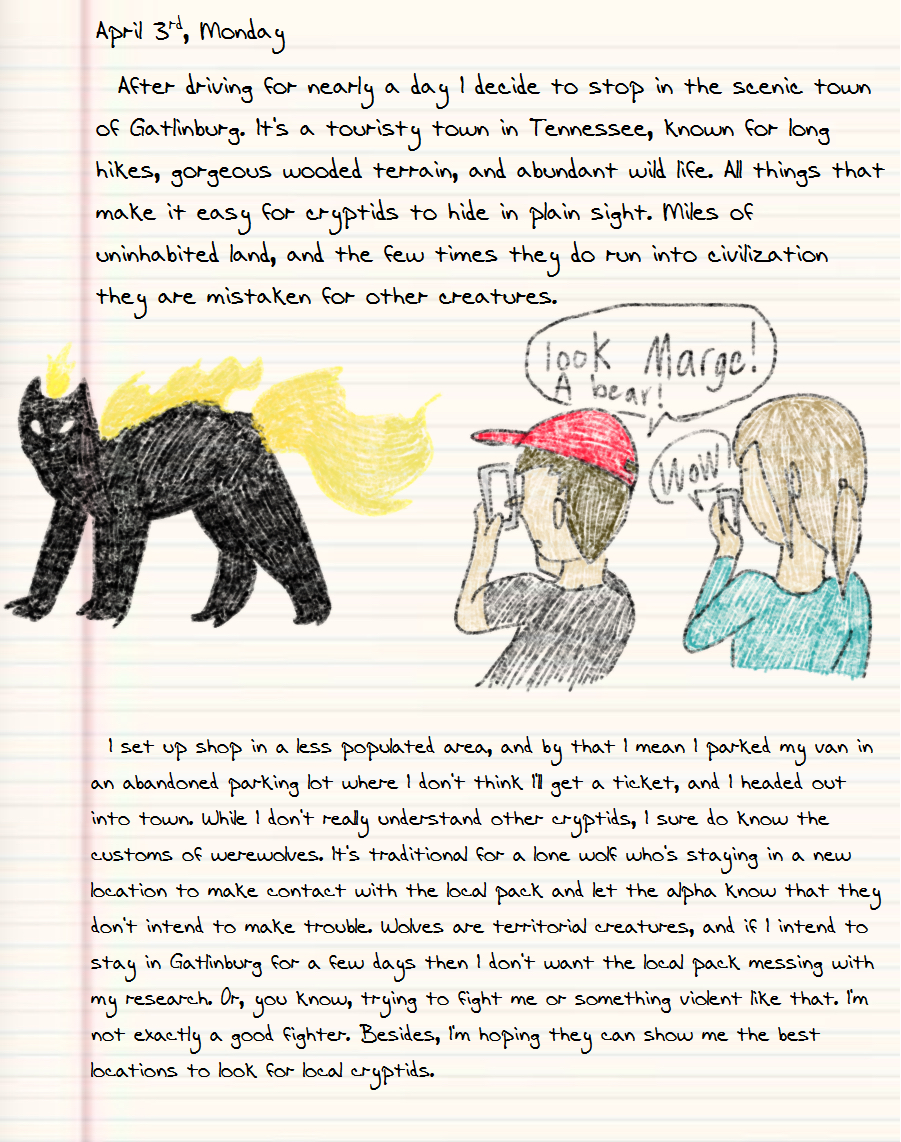 April 3rd, Monday
After driving for nearly a day I decide to stop in the scenic town
of Gatlinburg. It's a touristy town in Tennessee, known for long
hikes, gorgeous wooded terrain, and abundant wild life. All things that
make it easy for cryptids to hide in plain sight. Miles of
uninhabited land, and the few times they do run into civilization
they are mistaken for other creatures.
look Marge!
A bear!
Wow!
I set up shop in a less populated area, and by that I mean I parked my van in
an abandoned parking lot where I don't think I'll get a ticket, and I headed out
into town. While I don't really understand other cryptids, I sure do know the
customs of werewolves. It's traditional for a lone wolf who's staying in a new
location to make contact with the local pack and let the alpha know that they
don't intend to make trouble. Wolves are territorial creatures, and if I intend to
stay in Gatlinburg for a few days then I don't want the local pack messing with
my research. Or, you know, trying to fight me or something violent like that. I'm
not exactly a good fighter. Besides, I'm hoping they can show me the best
locations to look for local cryptids.